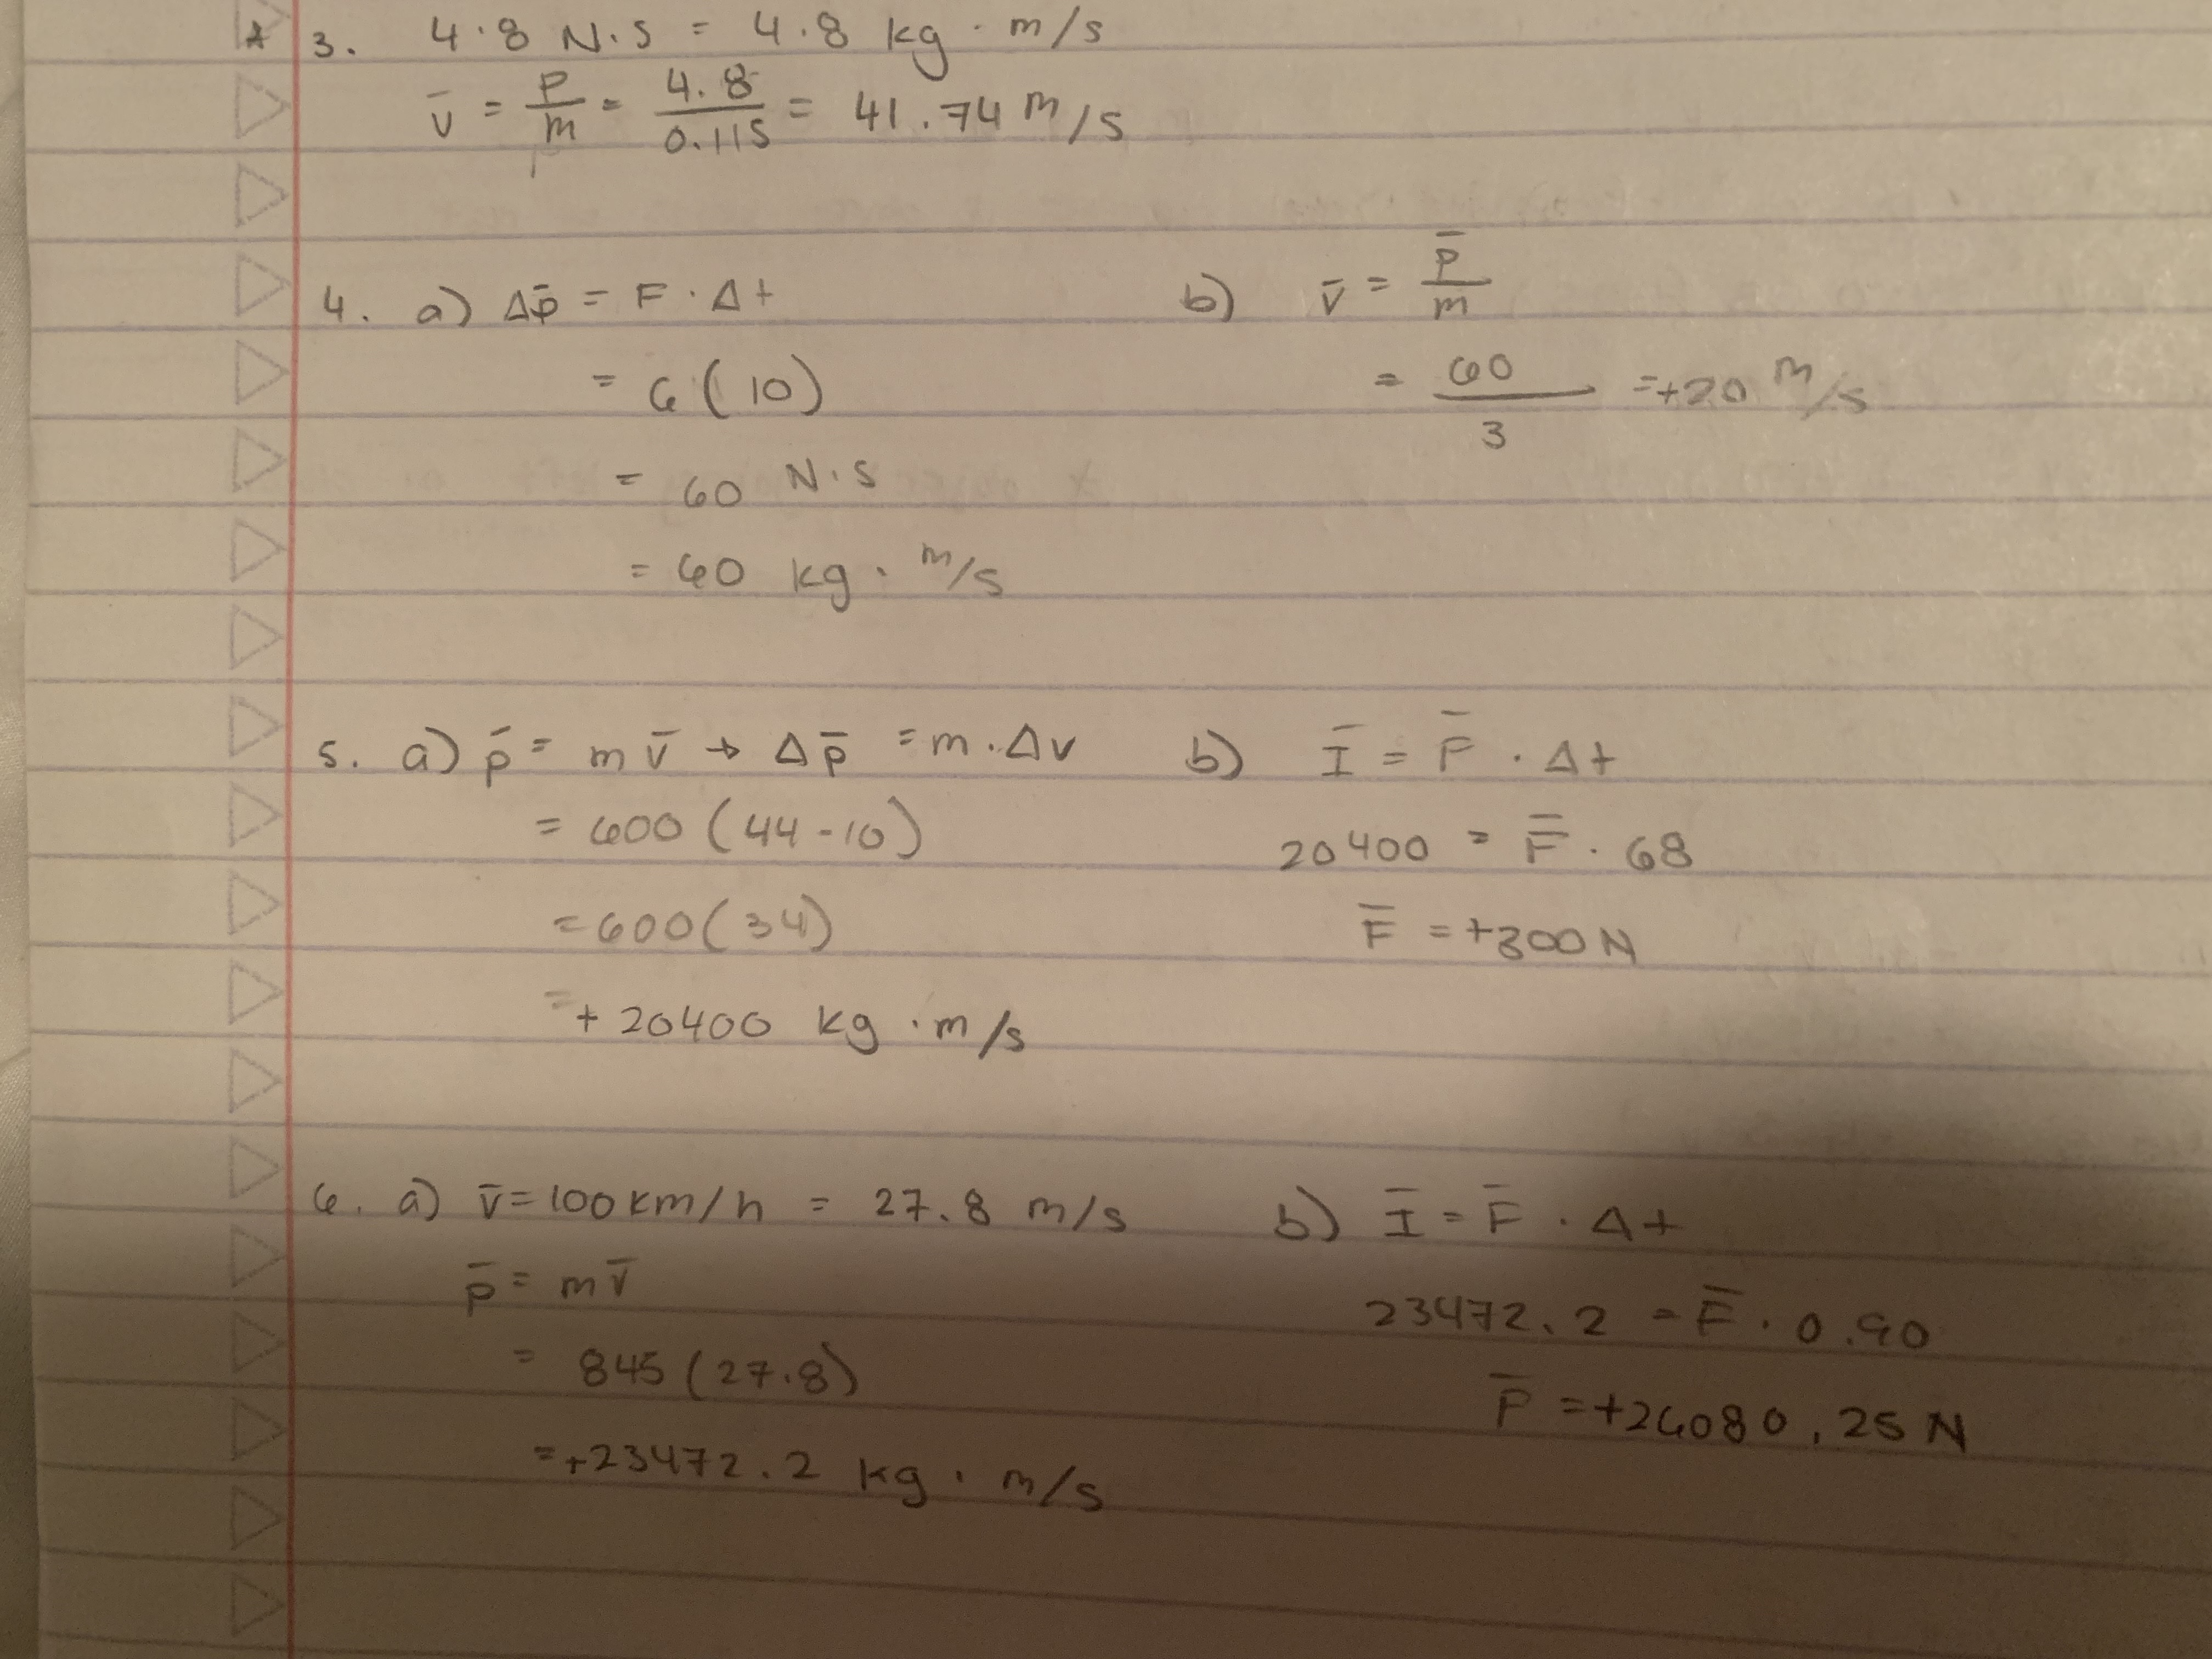 * 3. 4.8 N·s = 4.8 kg · m/s
v̄ = p/m = 4.8/0.115 = 41.74 m/s
4. a) Δp̄ = F · Δt
= 6(10)
= 60 N·s
= 60 kg · m/s
b) v̄ = p̄/m
= 60/3 = +20 m/s
5. a) p̄ = m v̄ → Δp̄ = m · Δv
= 600 (44-10)
= 600(34)
= + 20400 kg · m/s
b) Ī = F̄ · Δt
20400 = F̄ · 68
F̄ = +300N
6. a) v̄ = 100 km/h = 27.8 m/s
p̄ = m v̄
= 845 (27.8)
= +23472.2 kg · m/s
b) Ī = F̄ · Δt
23472.2 = F̄ · 0.90
F̄ = +26080.25 N